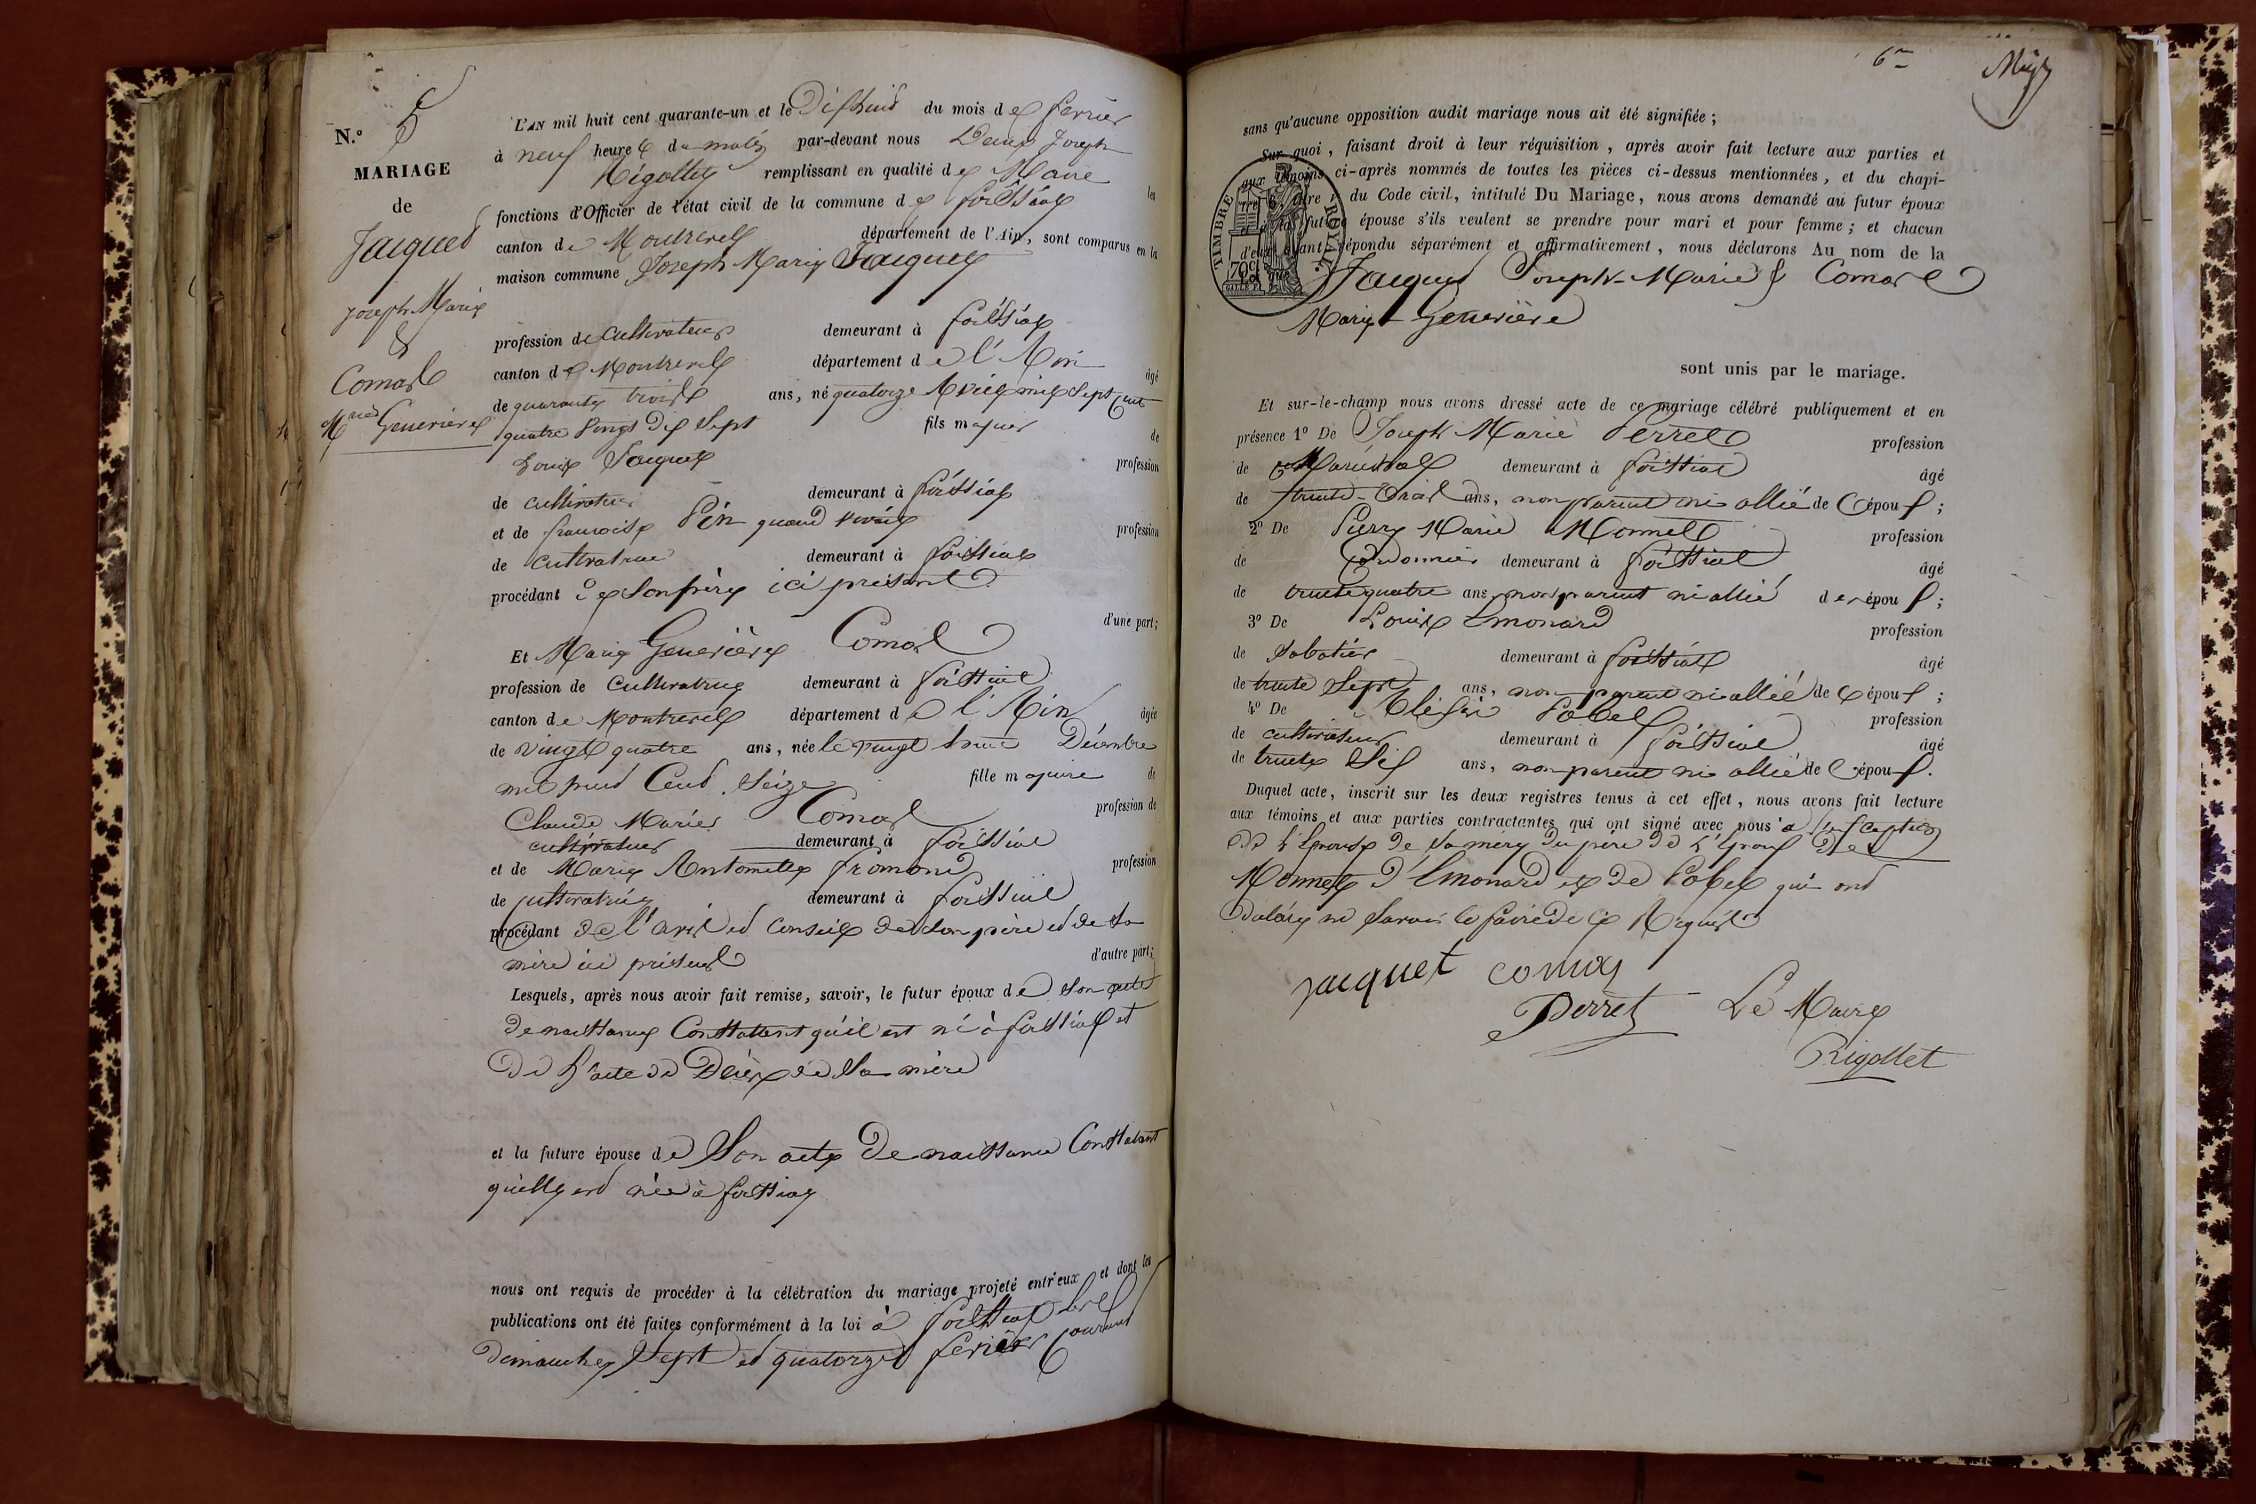 N.º 5
MARIAGE
de
Jacquet
Joseph Marie
&
Comas
Marie Genevieve
L'AN mil huit cent quarante-un et le Dixhuit du mois de fevrier
à neuf heures du matin par-devant nous Joseph
Rigollet remplissant en qualité de Maire les
fonctions d'Officier de l'état civil de la commune de foissiat
canton de Montrevel département de l'Ain, sont comparus en la
maison commune Joseph Marie Jacquet
profession de Cultivateur demeurant à foissiat
canton de Montrevel département de l'Ain âgé
de quarante trois ans, né quatorze Avril mil Sept Cent
quatre Vingt dix Sept fils majeur de
Louis Jacquet profession
de cultivateur demeurant à foissiat
et de francoise Pin quand vivait profession
de cultivatrice demeurant à foissiat
procédant ici présent d'une part;
Et Marie Genevieve Comas
profession de cultivatrice demeurant à foissiat
canton de Montrevel département de l'Ain âgée
de vingt quatre ans, née le vingt Décembre
mil huit Cent Seize fille majeure de
Claude Marie Comas profession de
cultivateur demeurant à foissiat
et de Marie Antoinette fromond profession
de cultivatrice demeurant à foissiat
procédant de l'avis et Conseil de son père et de sa
mère ici présent d'autre part;
Lesquels, après nous avoir fait remise, savoir, le futur époux de Son acte
de naissance Constatant qu'il est né à foissiat et
de l'acte de Décès de Sa mère
et la future épouse de Son acte de naissance Constatant
qu'elle est née à foissiat
nous ont requis de procéder à la célébration du mariage projeté entr'eux et dont les
publications ont été faites conformément à la loi à foissiat les
dimanches Sept et quatorze fevrier Courant
6
sans qu'aucune opposition audit mariage nous ait été signifiée;
Sur quoi, faisant droit à leur réquisition, après avoir fait lecture aux parties et
aux témoins ci-après nommés de toutes les pièces ci-dessus mentionnées, et du chapi-
tre 6, titre du Code civil, intitulé Du Mariage, nous avons demandé au futur époux
à la future épouse s'ils veulent se prendre pour mari et pour femme; et chacun
d'eux ayant répondu séparément et affirmativement, nous déclarons Au nom de la
loi que Jacquet Joseph-Marie & Comas
Marie Genevieve
TIMBRE ROYAL
70c
sont unis par le mariage.
Et sur-le-champ nous avons dressé acte de ce mariage célébré publiquement et en
présence 1º De Joseph Marie Perret profession
de Maréchal demeurant à foissiat âgé
de trente-trois ans, non parent ni allié de l'époux;
2º De Pierre Marie Monnet profession
de Cordonnier demeurant à foissiat âgé
de trente quatre ans, non parent ni allié des époux;
3º De Louis Emonard profession
de Sabotier demeurant à foissiat âgé
de trente Sept ans, non parent ni allié de l'époux;
4º De profession
de cultivateur demeurant à foissiat âgé
de trente Six ans, non parent ni allié de l'époux.
Duquel acte, inscrit sur les deux registres tenus à cet effet, nous avons fait lecture
aux témoins et aux parties contractantes qui ont signé avec nous à l'exception
de l'Epouse de sa mère du père de l'Epoux de
Monnet d'Emonard et de qui ont
déclaré ne Savoir le faire de ce Requis
jacquet comas
Perret Le Maire
Rigollet